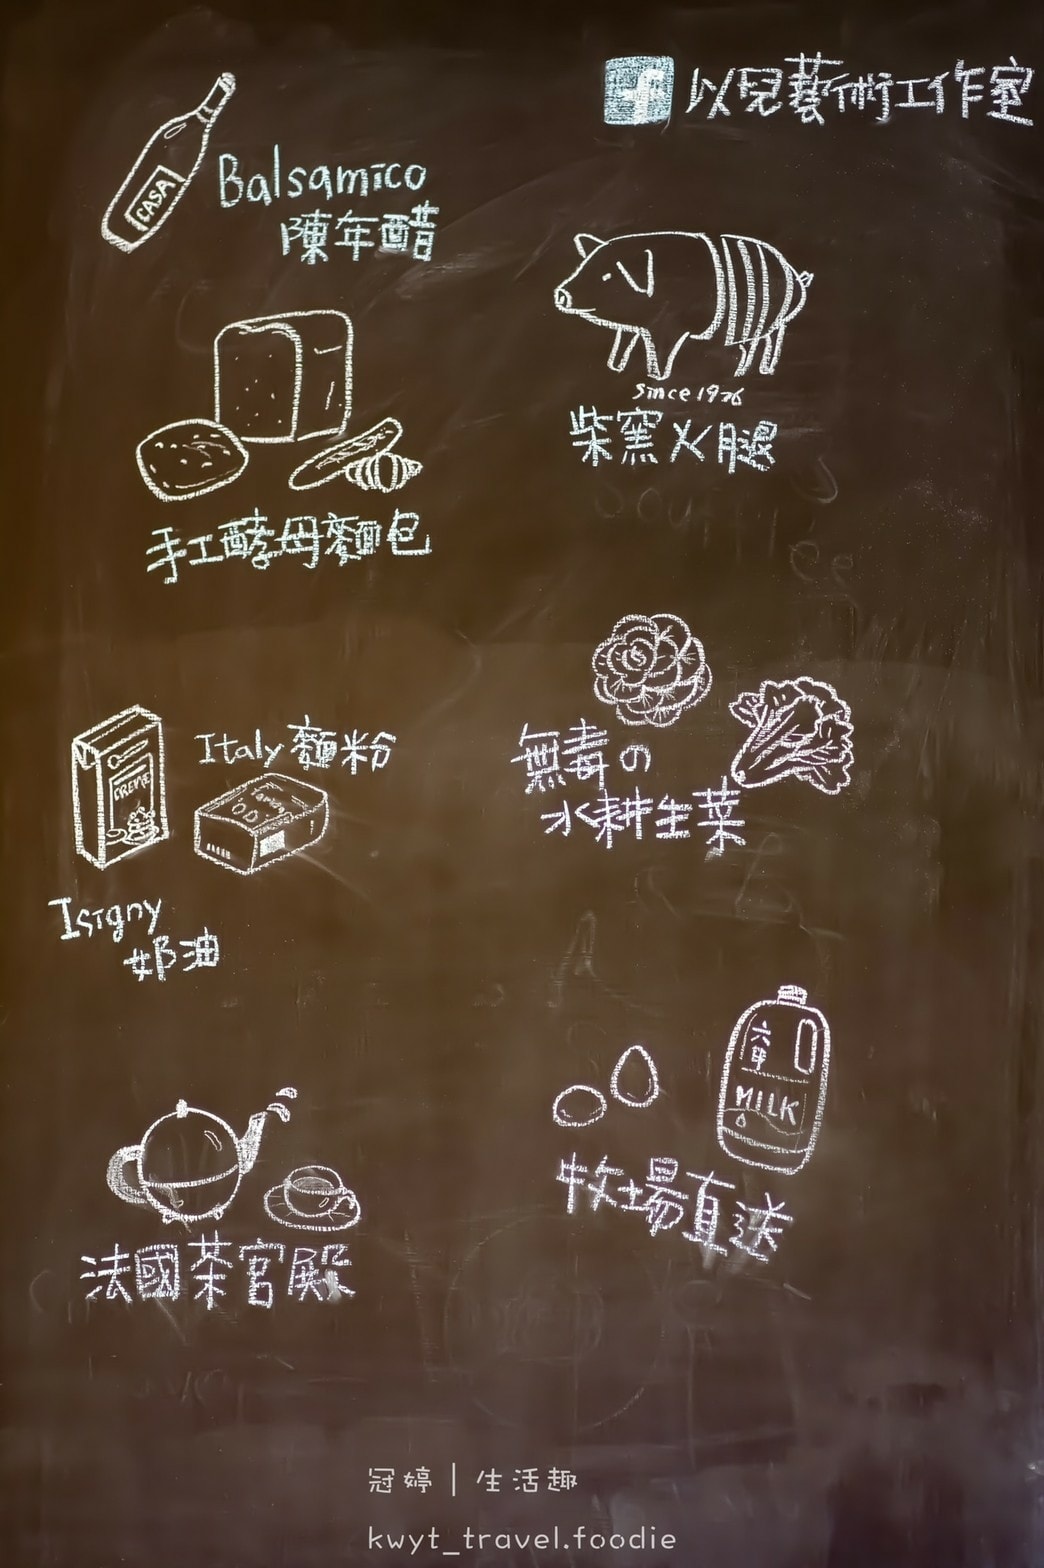 以兒藝術工作室
CASA
Balsamico
陳年醋
since 1976
柴窯火腿
手工酵母麵包
Italy 麵粉
Isigny
奶油
無毒の
水耕生菜
MILK
牧場直送
法國茶宮殿
冠婷 | 生活趣
kwyt_travel.foodie